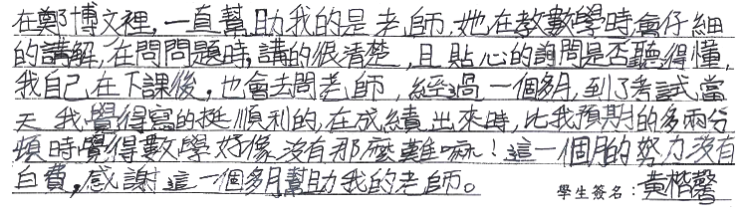 在鄭博文裡,一直幫助我的是老師,她在教數學時會仔細
的講解,在問問題時,講的很清楚,且貼心的詢問是否聽得懂,
我自己在下課後,也會去問老師,經過一個多月,到了考試當
天 我覺得寫的挺順利的,在成績出來時,比我預期的多兩分
頓時覺得數學好像沒有那麼難嘛!這一個月的努力沒有
白費,感謝這一個多月幫助我的老師。
學生簽名:黃楷馨